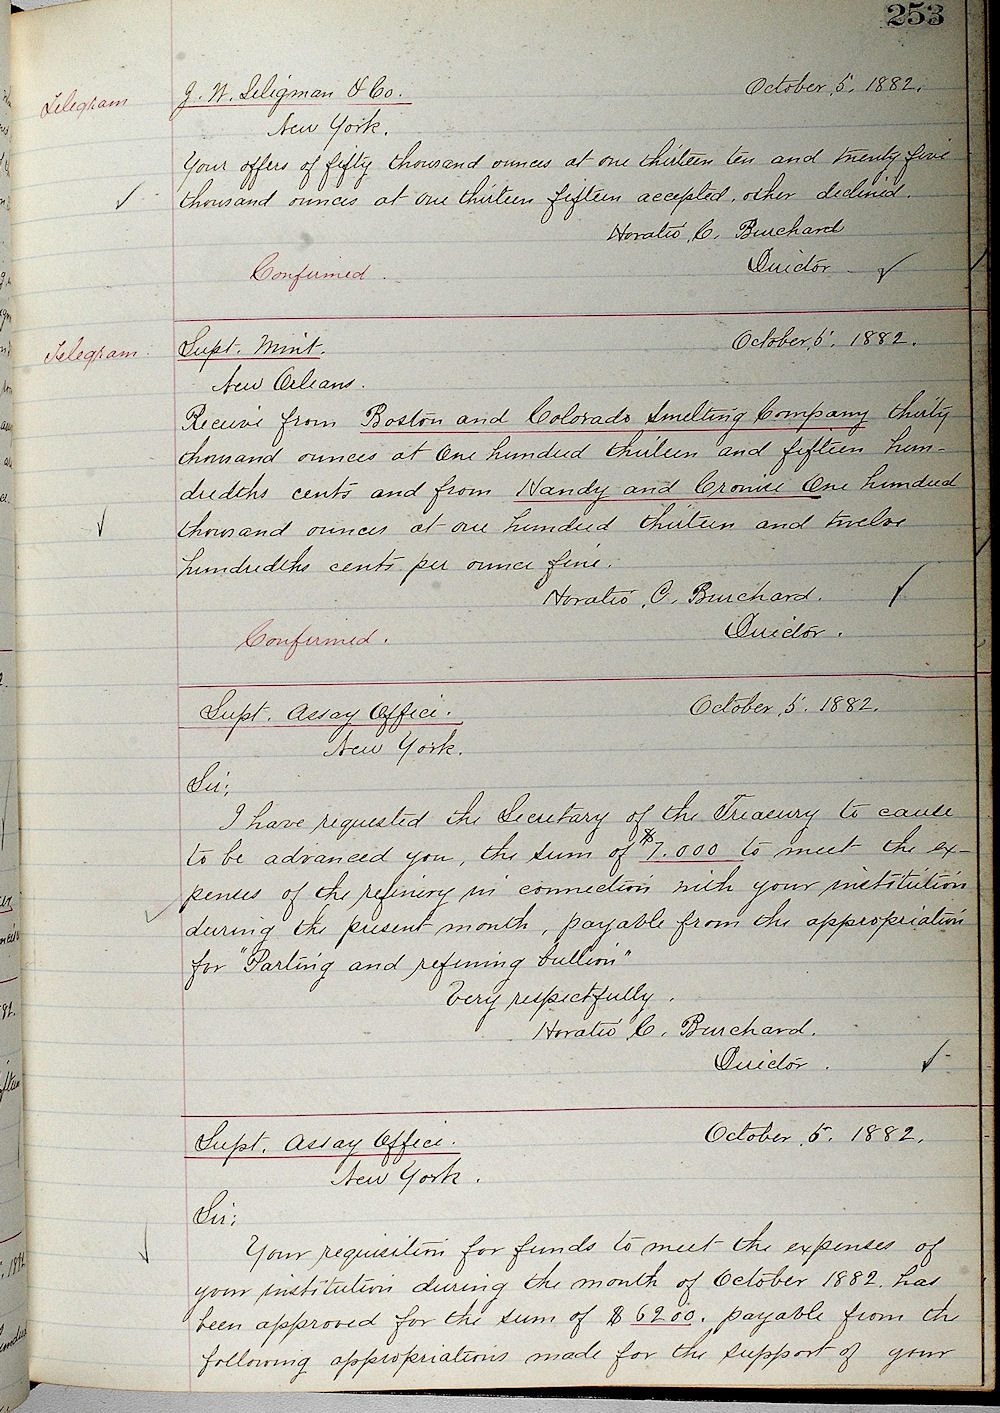 253
Telegram
J. W. Seligman & Co. October 5. 1882.
New York.
Your offers of fifty thousand ounces at one thirteen ten and twenty five
thousand ounces at one thirteen fifteen accepted, other declined.
Horatio C. Burchard
Director
Confirmed.
Telegram.
Supt. Mint. October 5. 1882.
New Orleans.
Receive from Boston and Colorado Smelting Company thirty
thousand ounces at One hundred thirteen and fifteen hun-
dredths cents and from Handy and Cronise One hundred
thousand ounces at one hundred thirteen and twelve
hundredths cents per ounce fine.
Horatio C. Burchard.
Director.
Confirmed.
Supt. Assay Office. October 5. 1882.
New York.
Sir;
I have requested the Secretary of the Treasury to cause
to be advanced you, the sum of $7.000 to meet the ex-
penses of the refinery in connection with your institution
during the present month, payable from the appropriation
for "Parting and refining bullion"
Very respectfully.
Horatio C. Burchard.
Director.
Supt. Assay Office. October 5. 1882.
New York.
Sir;
Your requisition for funds to meet the expenses of
your institution during the month of October 1882. has
been approved for the sum of $6200. payable from the
following appropriations made for the support of your